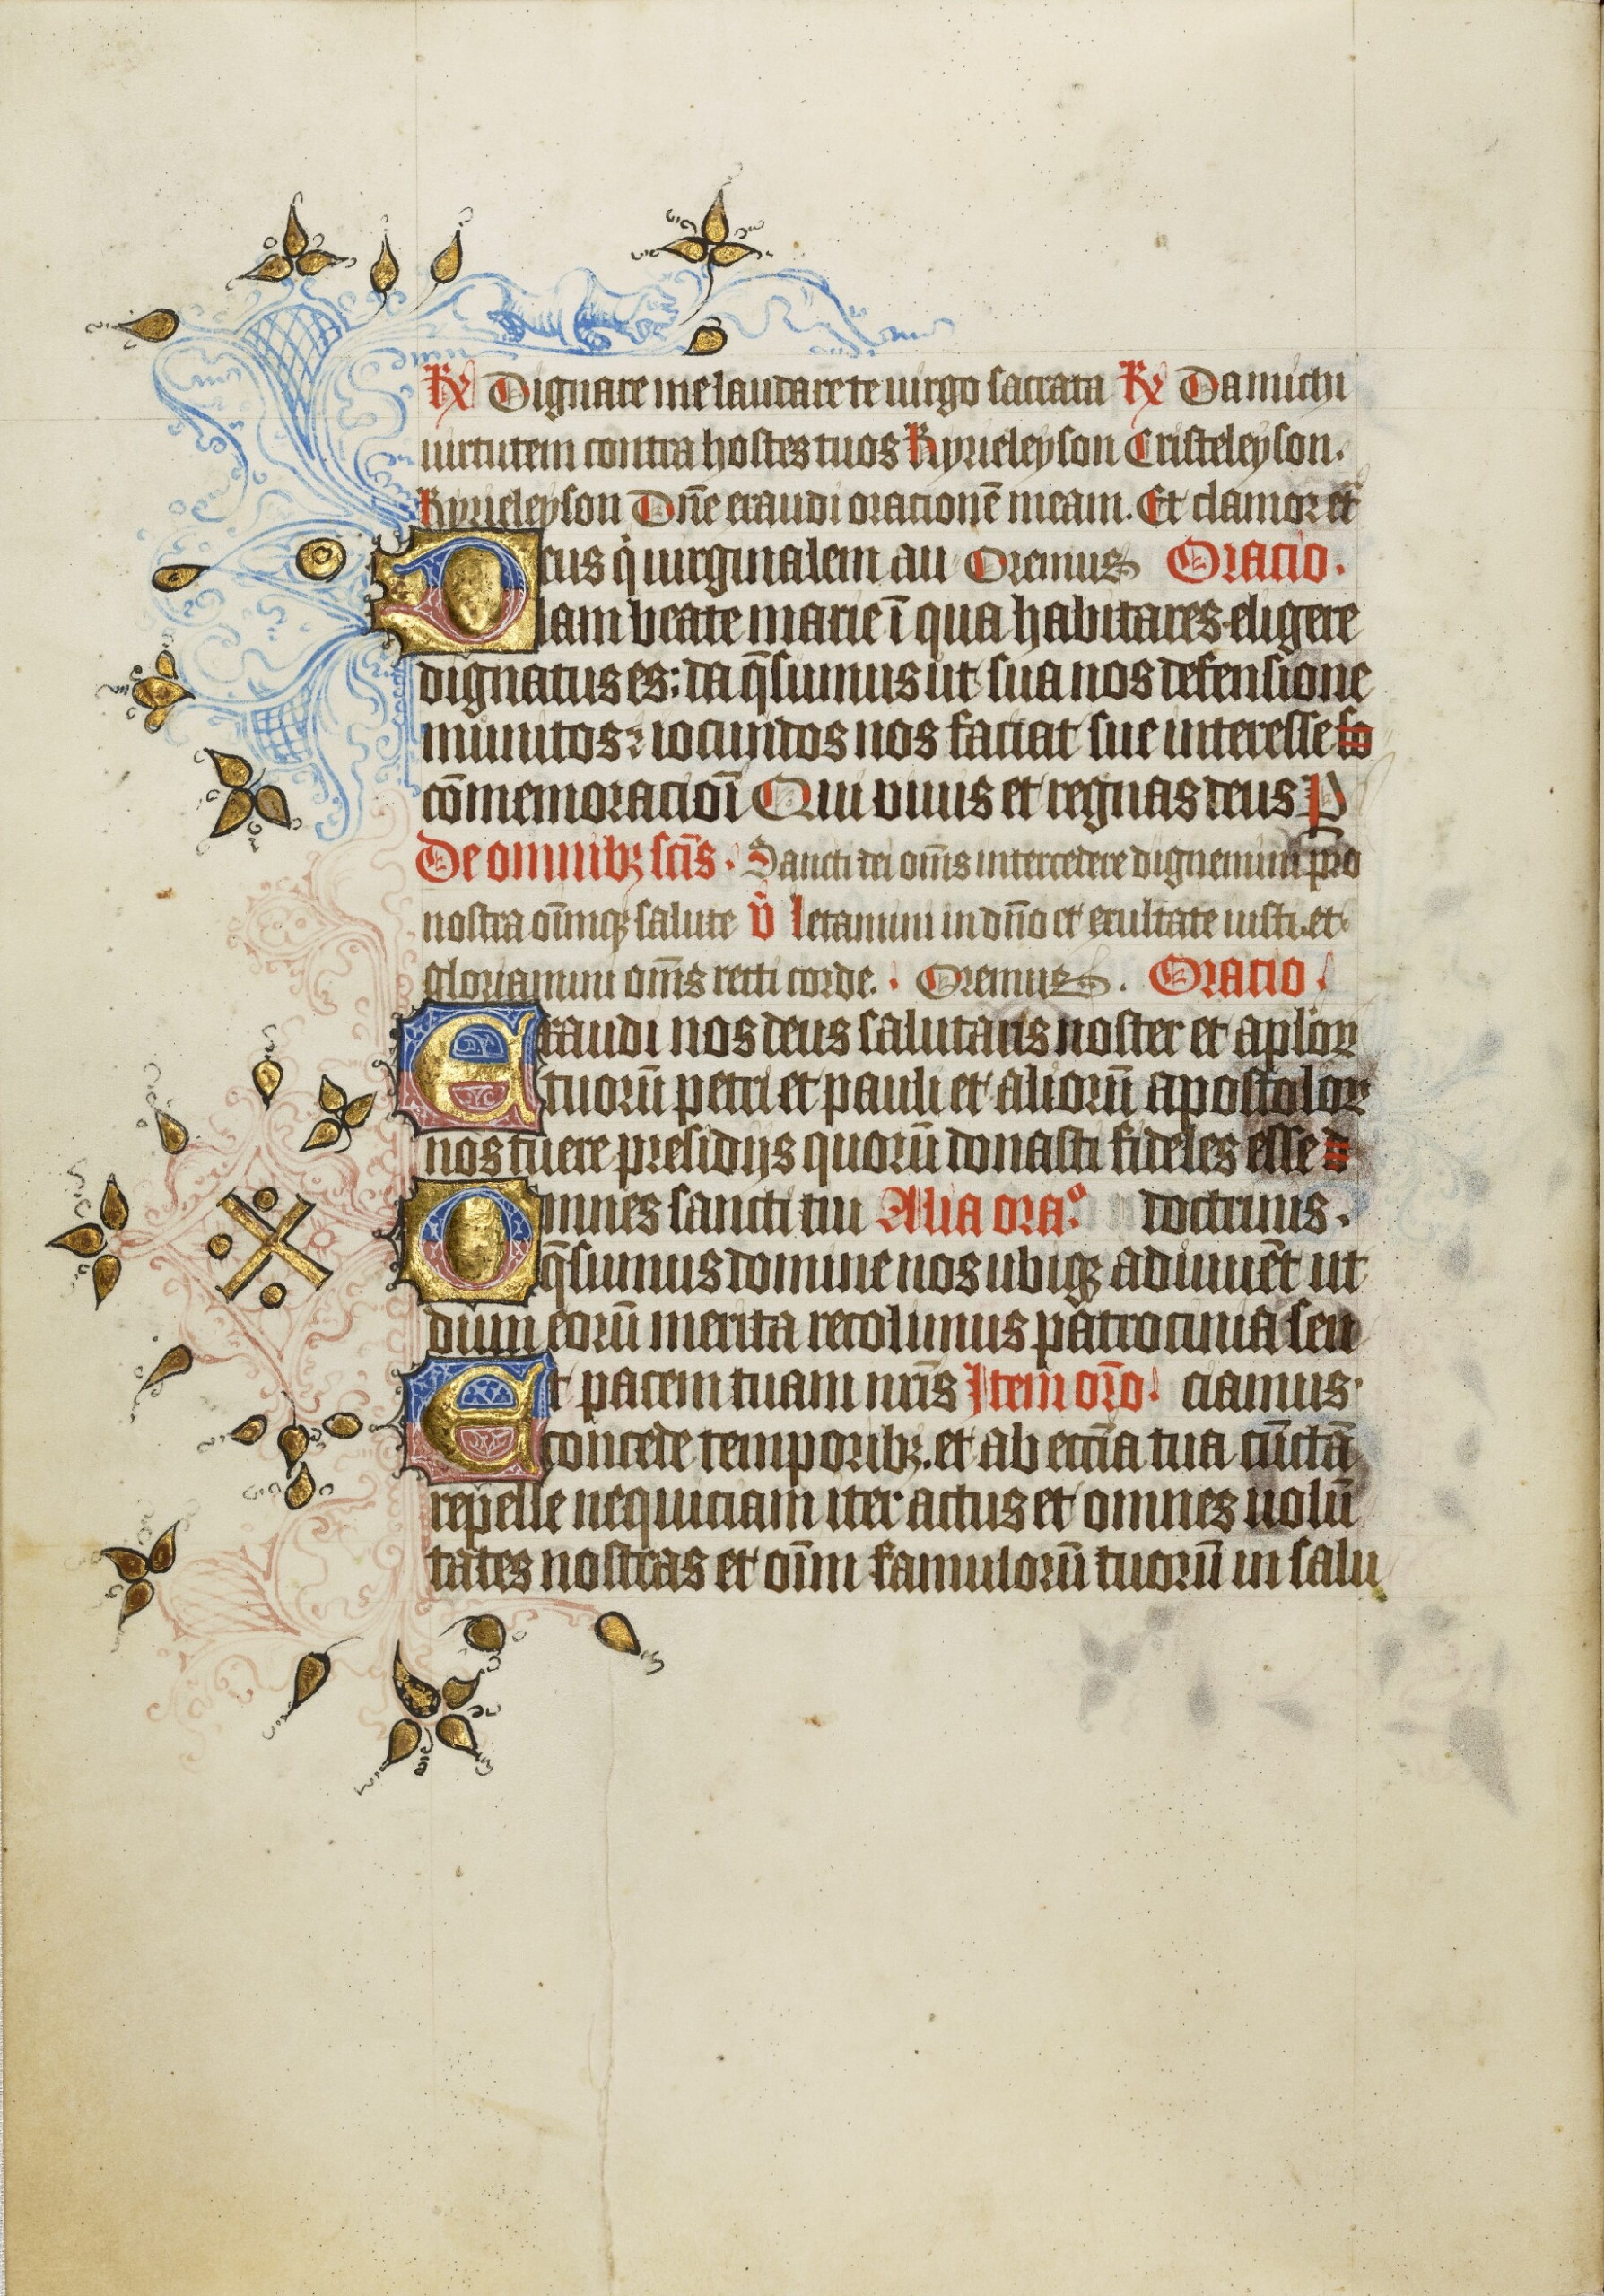 R Dignare me laudare te uirgo sacrata R Da michi
uirtutem contra hostes tuos Kyrieleyson Cristeleyson.
Kyrieleyson Dn̄e exaudi oracionē meam. Et clamor et
Deus q̇ uirginalem au Oremus Oracio.
lam beate marie ī qua habitares eligere
dignatus es: da q̄sumus ut sua nos defensione
munitos: iocundos nos faciat sue interesse
cōmemoracioī Qui uiuis et regnas deus P
De omnibꝫ scīs. Sancti dei om̄s intercedere dignemini pro
nostra om̄iūqꝫ salute v̄ letamini in dn̄o et exultate iusti. et
gloriamini om̄s recti corde. Oremus. Oracio.
Exaudi nos deus salutaris noster et aplōꝝ
tuorū petri et pauli et aliorū apostoloꝝ
nos tuere presidijs quorū donasti fideles esse
Omnes sancti tui Alia oraº. doctrinis.
q̄sumus domine nos ubiqꝫ adiuuēt ut
dum eorū merita recolimus patrocinia sen
Et pacem tuam nr̄is Item or̄o. ciamus.
concede temporibꝫ. et ab ecc̄ia tua cūctā
repelle nequiciam iter actus et omnes uolū
tates nostras et oīm famulorū tuorū in salu